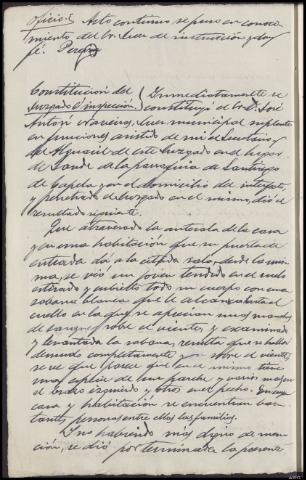 oficio. Acto continuo, se puso en conoci-
miento del Sr. Juez de instrucción y doy
fé.
Constitución del (Inmediatamente se
Juzgado é inspección. constituyó el Sr. D. José
Antón Naveira, Juez municipal suplente
en funciones asistido de mi el Secretario y
del Alguacil de este Juzgado en el lugar
de de la parroquia de Santiago
de y en el domicilio del interfecto,
y penetrado el Juzgado en el mismo, dió el
resultado siguiente.
Que atravesada la antesala de la casa
y en una habitación que su puerta de
entrada dá a la citada sala, desde la mis-
ma, se vió un joven tendido en el suelo
estirado y cubierto todo su cuerpo con una
sabana blanca que le alcanzaba hasta el
cuello en la que se aprecian unas manchas
de sangre sobre el vientre, y examinado
y levantada la sabana, resulta que se halla
desnudo completamente y sobre el vientre
se ve que parece que en el mismo tiene
una especie de una pared
el brazo izquierdo y otros en el pecho. En cuya
casa y habitación se encuentran bas-
tantes personas entre ellas las familias.
Y no habiendo más digno de men-
ción, se dió por terminada la presente